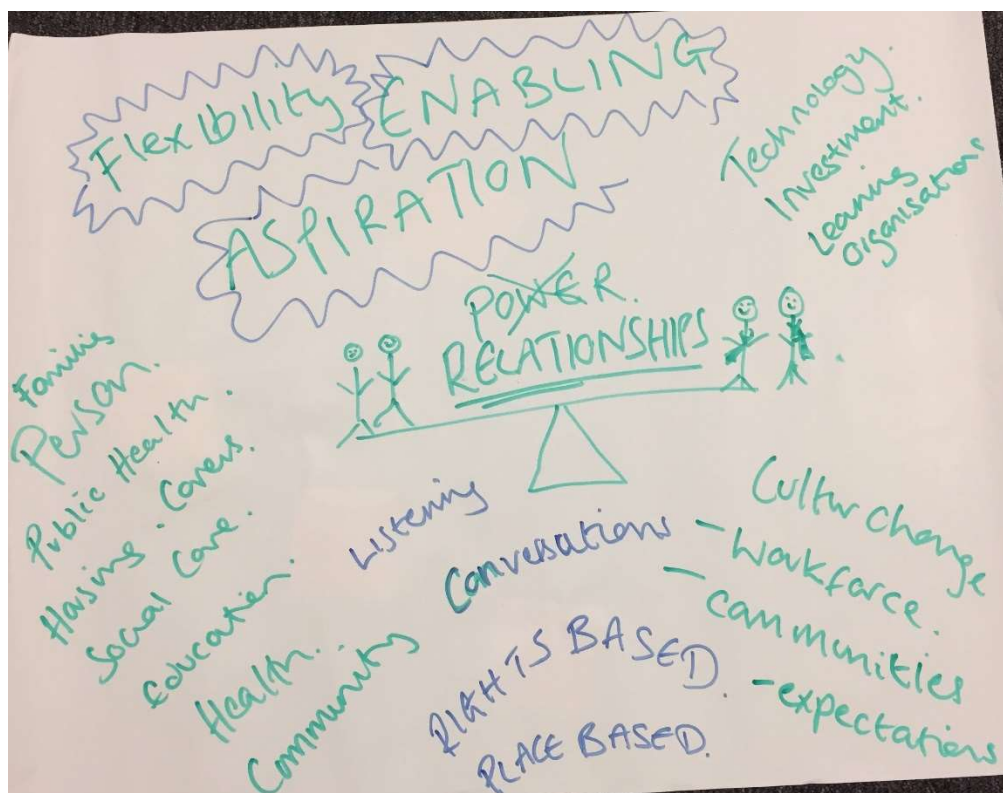 Flexibility
ENABLING
ASPIRATION
Technology.
Investment.
Learning
Organisations
POWER.
RELATIONSHIPS
Families
Person.
Public Health.
Housing. Carers.
Social Care.
Education.
Health.
Community
Listening
Conversations
RIGHTS BASED.
PLACE BASED.
Cultur Change
- Workforce.
- communities
- expectations